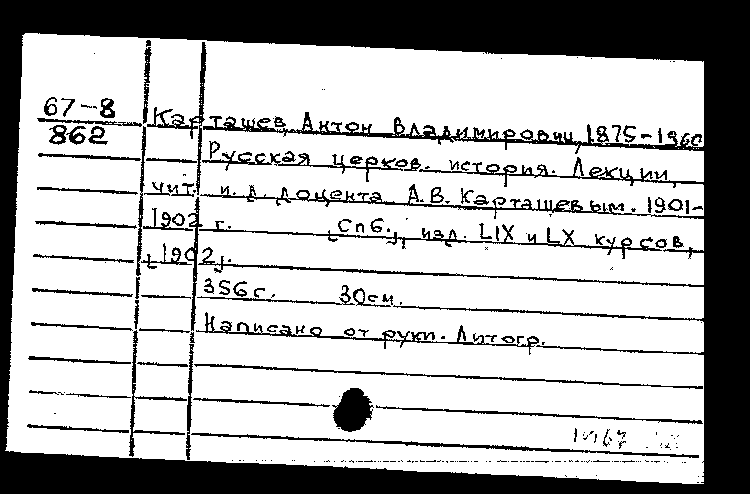 67-8
862
Карташев, Антон Владимирович, 1875-1960
Русская церков. история. Лекции,
чит. и. д. доцента А.В. Карташевым. 1901-
1902 г. [Спб.], изд. LIX и LX курсов,
[1902].
356 с. 30 см.
Написано от руки. Литогр.